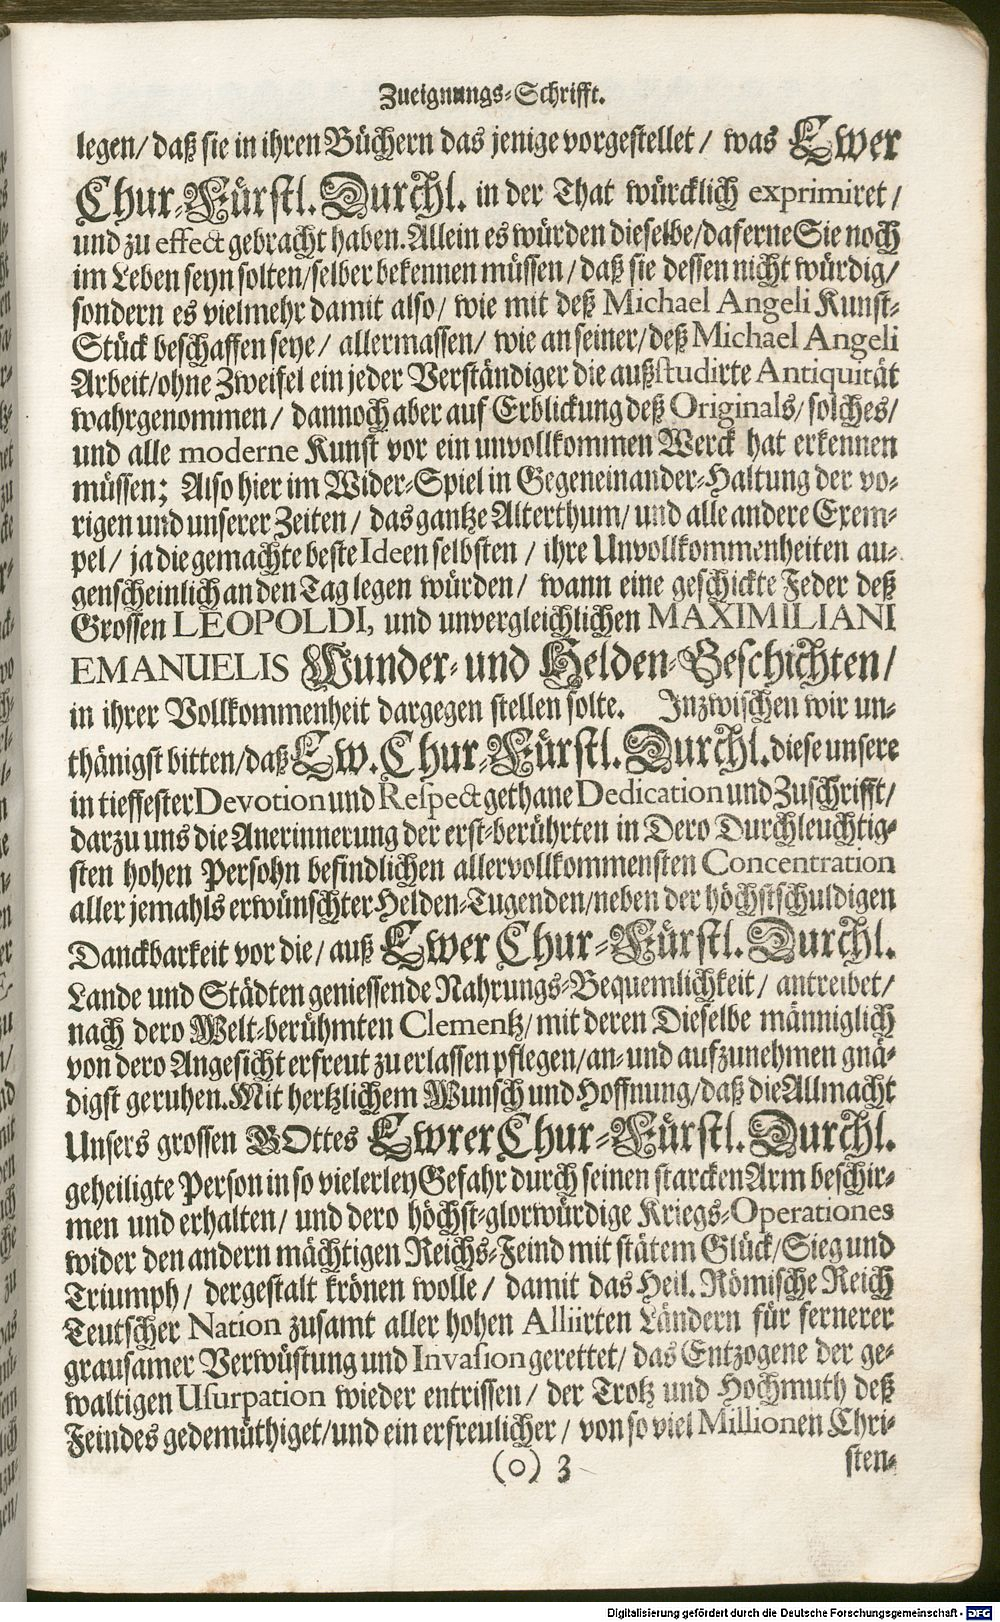 Zueignungs-Schrifft.
legen/ daß sie in ihren Büchern das jenige vorgestellet/ was Ewer
Chur-Fürstl. Durchl. in der That würcklich exprimiret/
und zu effect gebracht haben. Allein es würden dieselbe/ daferne Sie noch
im Leben seyn solten/ selber bekennen müssen/ daß sie dessen nicht würdig/
sondern es vielmehr damit also/ wie mit deß Michael Angeli Kunst-
Stück beschaffen seye/ allermassen/ wie an seiner/ deß Michael Angeli
Arbeit/ ohne Zweifel ein jeder Verständiger die außstudirte Antiquität
wahrgenommen/ dannoch aber auf Erblickung deß Originals/ solches/
und alle moderne Kunst vor ein unvollkommen Werck hat erkennen
müssen; Also hier im Wider-Spiel in Gegeneinander-Haltung der vo-
rigen und unserer Zeiten/ das gantze Alterthum/ und alle andere Exem-
pel/ ja die gemachte beste Ideen selbsten/ ihre Unvollkommenheiten au-
genscheinlich an den Tag legen würden/ wann eine geschickte Feder deß
Grossen LEOPOLDI, und unvergleichlichen MAXIMILIANI
EMANUELIS Wunder- und Helden-Geschichten/
in ihrer Vollkommenheit dargegen stellen solte. Inzwischen wir un-
thänigst bitten/ daß Ew. Chur-Fürstl. Durchl. diese unsere
in tieffester Devotion und Respect gethane Dedication und Zuschrifft/
darzu uns die Anerinnerung der erst-berührten in Dero Durchleuchtig-
sten hohen Persohn befindlichen allervollkommensten Concentration
aller jemahls erwünschter Helden-Tugenden/ neben der höchstschuldigen
Danckbarkeit vor die/ auß Ewer Chur-Fürstl. Durchl.
Lande und Städten geniessende Nahrungs-Bequemlichkeit/ antreibet/
nach dero Welt-berühmten Clementz/ mit deren Dieselbe männiglich
von dero Angesicht erfreut zu erlassen pflegen/ an- und aufzunehmen gnä-
digst geruhen. Mit hertzlichem Wunsch und Hoffnung/ daß die Allmacht
Unsers grossen GOttes Ewrer Chur-Fürstl. Durchl.
geheiligte Person in so vielerley Gefahr durch seinen starcken Arm beschir-
men und erhalten/ und dero höchst-glorwürdige Kriegs-Operationes
wider den andern mächtigen Reichs-Feind mit stätem Glück/ Sieg und
Triumph/ dergestalt krönen wolle/ damit das Heil. Römische Reich
Teutscher Nation zusamt aller hohen Alliirten Ländern für fernerer
grausamer Verwüstung und Invasion gerettet/ das Entzogene der ge-
waltigen Usurpation wieder entrissen/ der Trotz und Hochmuth deß
Feindes gedemüthiget/ und ein erfreulicher/ von so viel Millionen Chri-
(o) 3
sten-
Digitalisierung gefördert durch die Deutsche Forschungsgemeinschaft - DFG